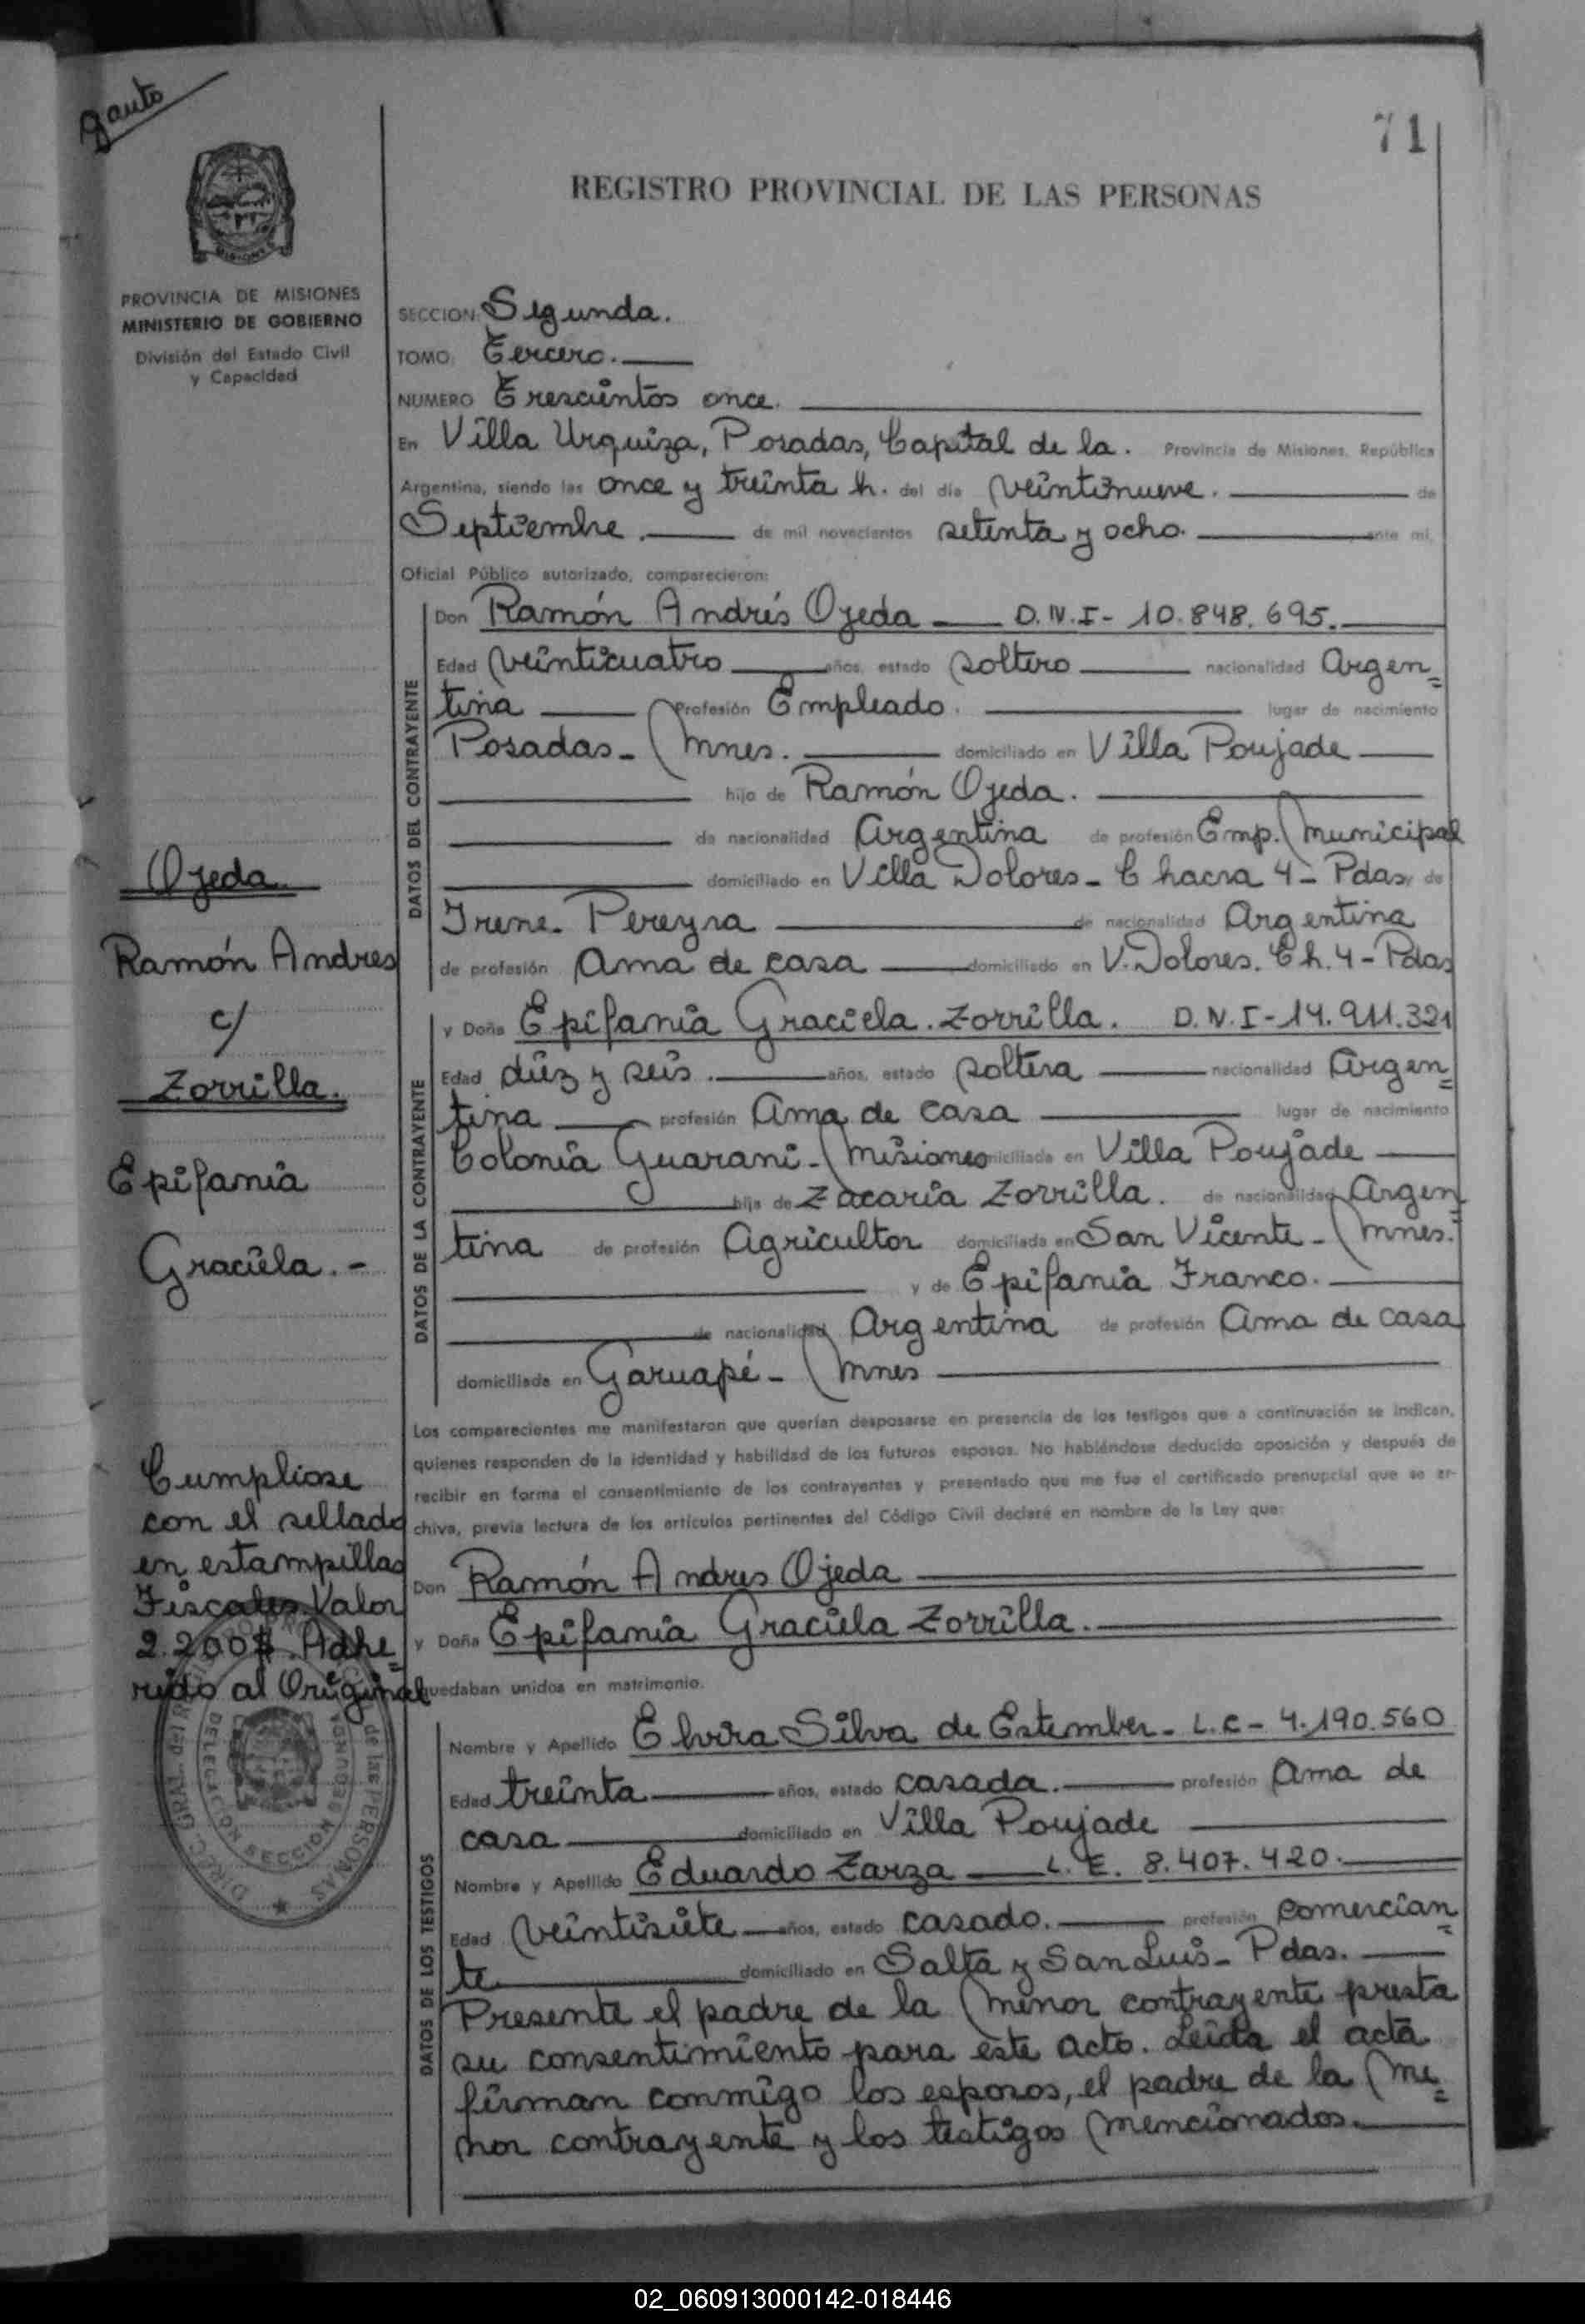 gauto
71
REGISTRO PROVINCIAL DE LAS PERSONAS
MISIONES
PROVINCIA DE MISIONES
MINISTERIO DE GOBIERNO
División del Estado Civil
y Capacidad
SECCION: Segunda.
TOMO: Tercero.
NUMERO Trescientos once.
En Villa Urquiza, Posadas, Capital de la. Provincia de Misiones, República
Argentina, siendo las once y treinta h. del día veintinueve. de
Septiembre. de mil novecientos setenta y ocho. ante mí,
Oficial Público autorizado, comparecieron:
DATOS DEL CONTRAYENTE
Don Ramón Andrés Ojeda D.N.I- 10.848.695.
Edad veinticuatro años, estado soltero nacionalidad Argen=
tina Profesión Empleado. lugar de nacimiento
Posadas- Mnes. domiciliado en Villa Poujade
hijo de Ramón Ojeda.
de nacionalidad Argentina de profesión Emp. Municipal
domiciliado en Villa Dolores- Chacra 4- Pdas, y de
Irene. Pereyra de nacionalidad Argentina
de profesión Ama de casa domiciliado en V. Dolores. Ch. 4- Pdas
DATOS DE LA CONTRAYENTE
y Doña Epifania Graciela. Zorrilla. D.N.I-14.911.321
Edad diez y seis. años, estado soltera nacionalidad Argen=
tina profesión Ama de casa lugar de nacimiento
Colonia Guarani- Misiones domiciliada en Villa Poujade
hija de Zacaria Zorrilla. de nacionalidad Argen=
tina de profesión Agricultor domiciliado en San Vicente- Mnes.
y de Epifania Franco.
de nacionalidad Argentina de profesión Ama de casa
domiciliada en Garuapé- Mnes
Los comparecientes me manifestaron que querían desposarse en presencia de los testigos que a continuación se indican,
quienes responden de la identidad y habilidad de los futuros esposos. No habiéndose deducido oposición y después de
recibir en forma el consentimiento de los contrayentes y presentado que me fue el certificado prenupcial que se ar-
chiva, previa lectura de los artículos pertinentes del Código Civil declaré en nombre de la Ley que:
Don Ramón Andres Ojeda
y Doña Epifania Graciela Zorrilla.
quedaban unidos en matrimonio.
DATOS DE LOS TESTIGOS
Nombre y Apellido Elvira Silva de Estember- L.C- 4.190.560
Edad treinta años, estado casada. profesión Ama de
casa domiciliado en Villa Poujade
Nombre y Apellido Eduardo Zarza L.E. 8.407.420.
Edad veintisiete años, estado casado. profesión comercian=
te domiciliado en Salta y San Luis- Pdas.
Presente el padre de la menor contrayente presta
su consentimiento para este acto. Leída el acta
firman conmigo los esposos, el padre de la me=
nor contrayente y los testigos mencionados.
Ojeda
Ramón Andres
c/
Zorrilla.
Epifania
Graciela.-
Cumpliose
con el sellado
en estampillas
Fiscales Valor
2.200$. Adhe=
rido al Original
DIREC. GRAL. del REGISTRO PROVINCIAL de las PERSONAS
DELEGACION SECCION SEGUNDA
02_060913000142-018446